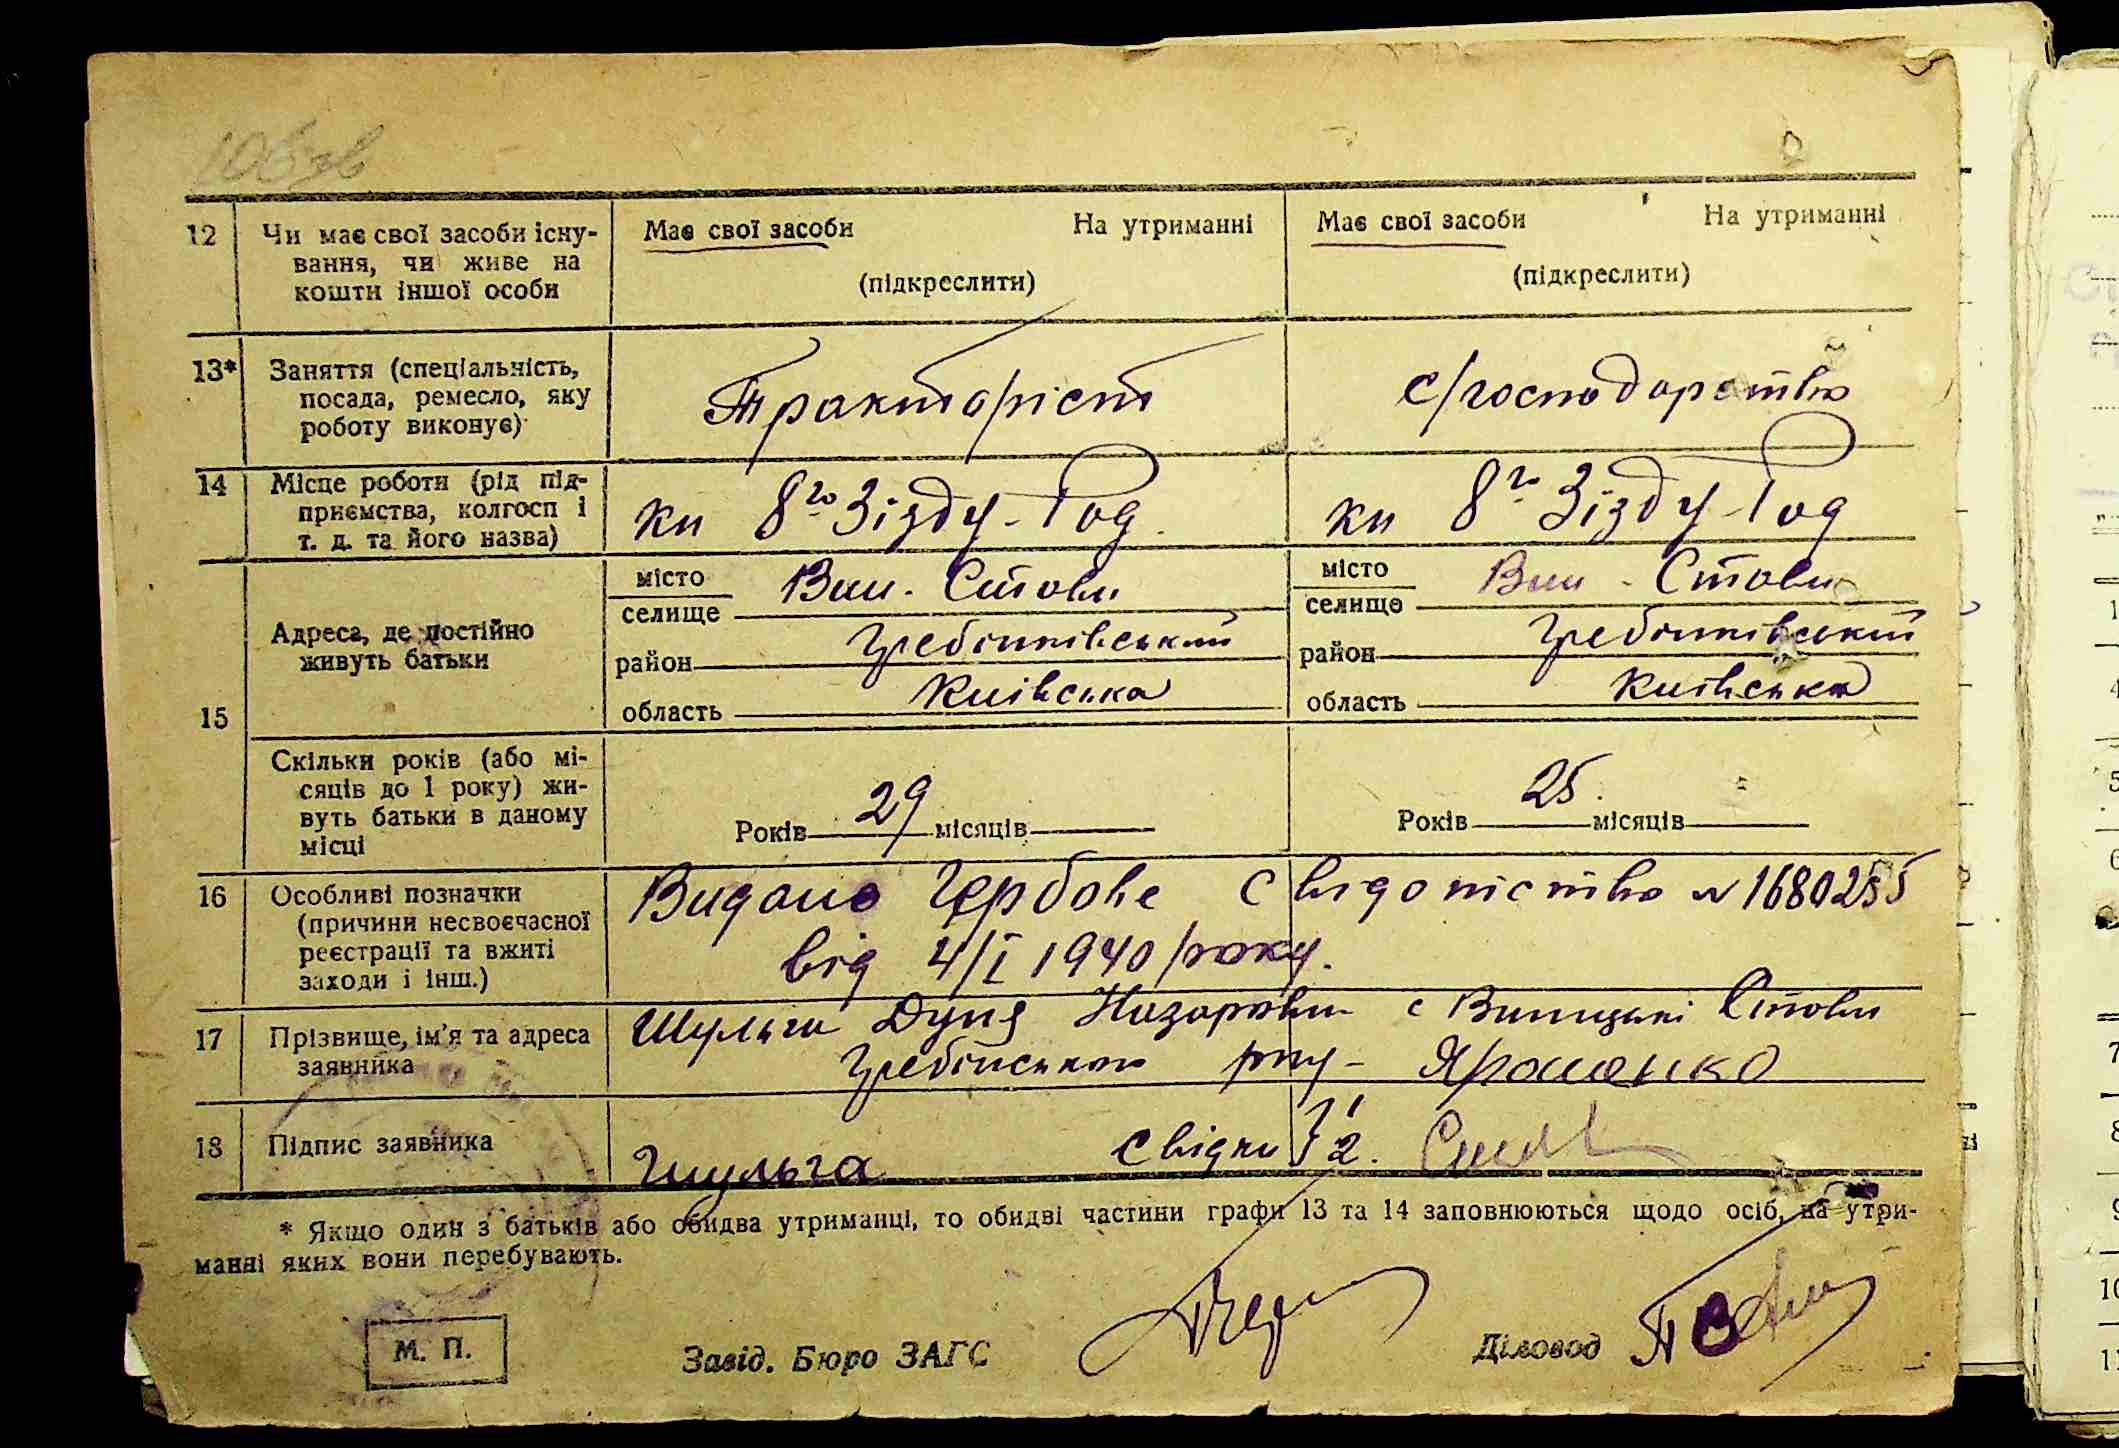 12 Чи має свої засоби існу-
вання, чи живе на
кошти іншої особи
Має свої засоби На утриманні
(підкреслити)
Має свої засоби На утриманні
(підкреслити)
13* Заняття (спеціальність,
посада, ремесло, яку
роботу виконує)
Тракторіст
с/господарство
14 Місце роботи (рід під-
приємства, колгосп і
т. д. та його назва)
кп 8го Зізду-Год
кп 8го Зізду-Год
15 Адреса, де постійно
живуть батьки
місто
селище Вин. Стови
район Гребінківський
область Київська
місто
селище Вин - Стови
район Гребінківський
область Київська
Скільки років (або мі-
сяців до 1 року) жи-
вуть батьки в даному
місці
Років 29 місяців
Років 25. місяців
16 Особливі позначки
(причини несвоєчасної
реєстрації та вжиті
заходи і інш.)
Видано Гербове Свідотство № 1680255
від 4/I 1940/року.
17 Прізвище, ім'я та адреса
заявника
Шульга Дуня Назаровн с Виницькі Стови
Гребінського рну - Ярошенко
18 Підпис заявника
Шульга Свідки 1 2.
* Якщо один з батьків або обидва утриманці, то обидві частини графи 13 та 14 заповнюються щодо осіб, на утри-
манні яких вони перебувають.
М. П.
Завід. Бюро ЗАГС
Діловод